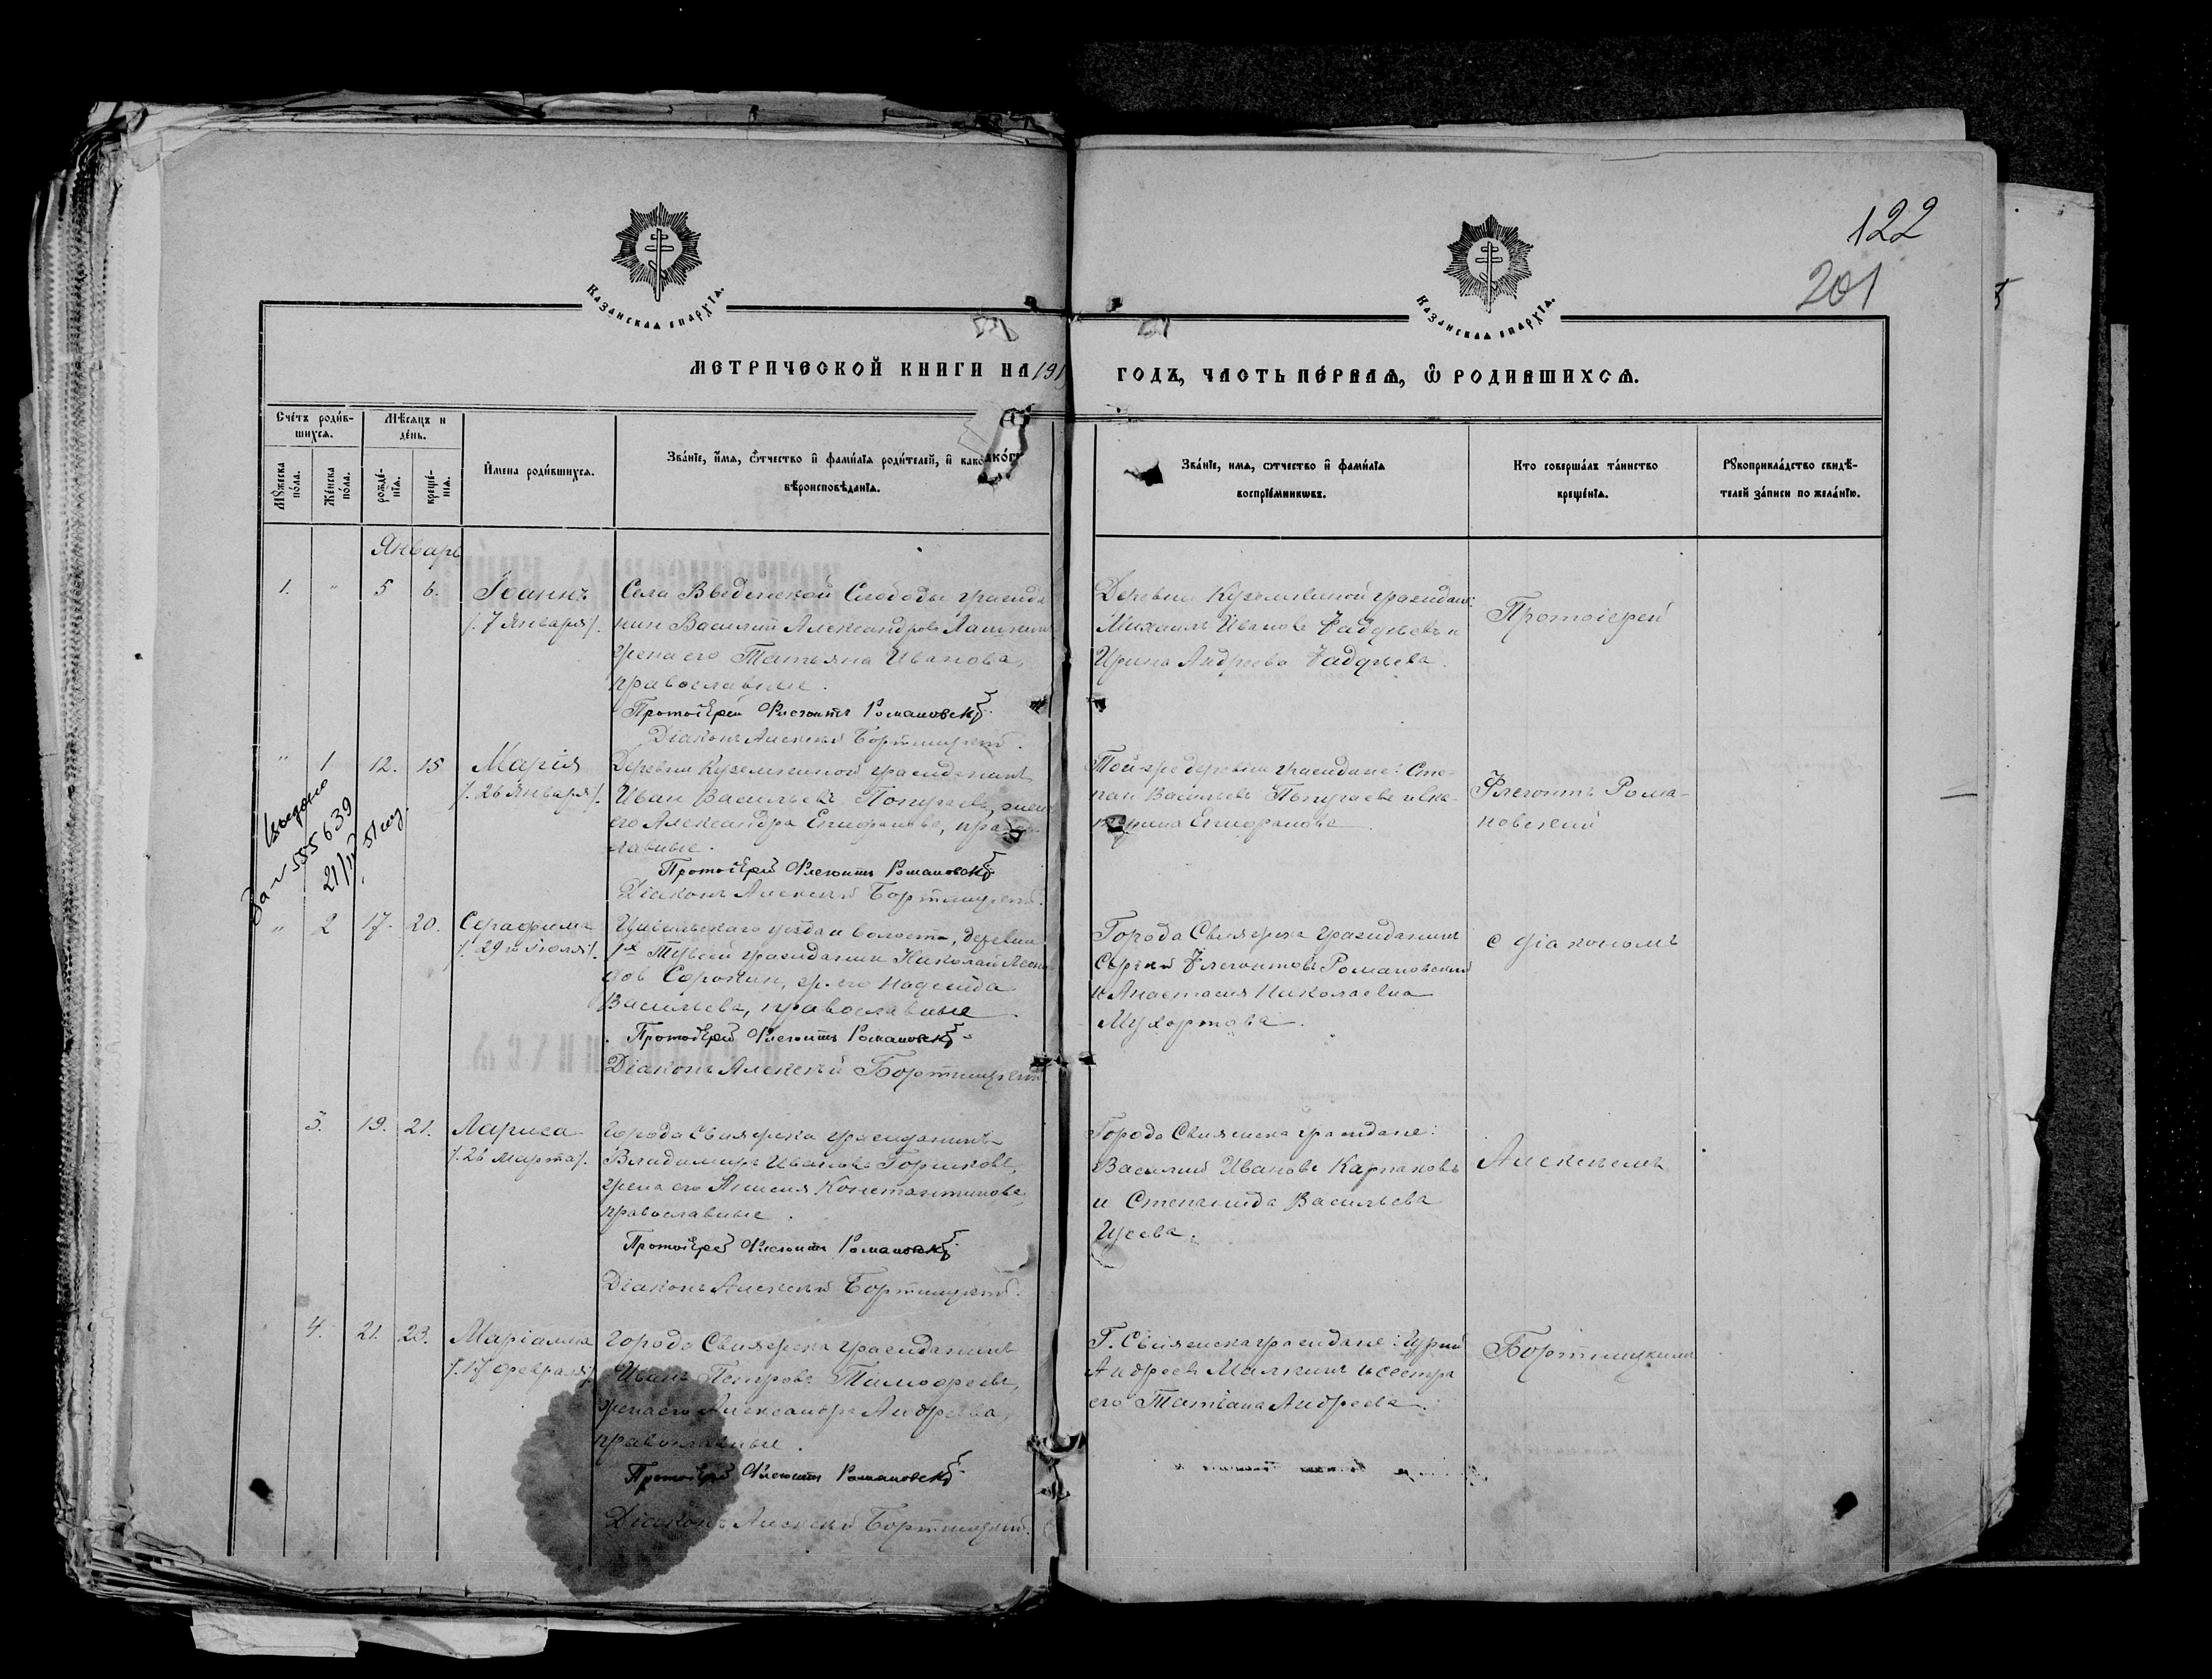 122
201
Казанская епархїѧ.
Казанская епархїѧ.
МЕТРИЧЕСКОЙ КНИГИ НА 191
ГОДЪ, ЧАСТЬ ПЕ́РВАѦ, Ѽ РОДИВШИХСѦ.
Сче́тъ роди́вшихсѧ.
Мѣ́сяцъ и де́нь.
Мꙋжеска по́ла.
Же́нска по́ла.
рожде́нїѧ.
креще́нїѧ.
И҆мена роди́вшихсѧ.
Зва́нїе, и҆мѧ, ѻ҆́тчество и҆ фами́лїѧ роди́телей, и҆ како́гѡ
вѣроисповѣ́данїѧ.
Зва́нїе, имѧ, ѻтчество и҆ фами́лїѧ
воспрїе́мникѡвъ.
Кто соверша́лъ та́инство
креще́нїѧ.
Рꙋкоприкла́дство свидѣ́-
телей за́писи по жела́нїю.
Январь
1. " 5 6. Іоаннъ
/. 7 Января /.
Села Введенской Слободы гражда
нин Василий Александров
жена его Татьяна Иванова,
православные.
Протоіерей Флегонтъ Романовскій
Діаконъ Алексѣй Бортницкій.
Деревни гражданѣ:
Михаилъ Иванов Фадѣевъ и
Ирина Андреева Фадѣева.
Протоіерей
" 1 12. 15 Марія
/. 26 Января /.
Деревни гражданинъ
Иван Васильевъ жена
его Александра Епифанова, право
лавные.
Протоіерей Флегонтъ Романовскій
Діаконъ Алексѣй Бортницкій.
Той-же деревни граждане: Сте-
пан Васильевъ и Ека-
терина Епифанова
Флегонтъ Рома-
новский
За № 555639
21/II 51 год
" 2 17. 20. Серафима
/. 29го Июля /.
Цивильскаго уѣзда и волости, деревни
гражданин Николай
Сорокин, ж. его Надежда
Васильева, православные.
Протоіерей Флегонтъ Романовскій
Діаконъ Алексѣй Бортницкій
Города Свияжска гражданинъ
Сергий Флегонтовъ Романовский
и Анастасия Николаевна
Мухортова.
с діакономъ
3. 19. 21. Лариса
/. 26 Марта /.
Города Свияжска гражданинъ
Владимиръ Ивановъ Горшковъ,
жена его Константинова,
православные.
Протоіерей Флегонтъ Романовскій
Діаконъ Алексѣй Бортницкій.
Города Свияжска граждане:
Василий Ивановъ Карпаковъ
и Степанида Васильева
Гусева.
Алексѣемъ
4. 21. 23. Маріамна
/. 17 февраля /.
Города Свияжска гражданинъ
Иванъ Петровъ Тимофеевъ,
жена его Александра Андреева,
православные.
Протоіерей Флегонтъ Романовскій
Діаконъ Алексѣй Бортницкій.
Г. Свияжска граждане: Гурий
Андреевъ Малкинъ и сестра
его Татіана Андреева.
Бортницкимъ